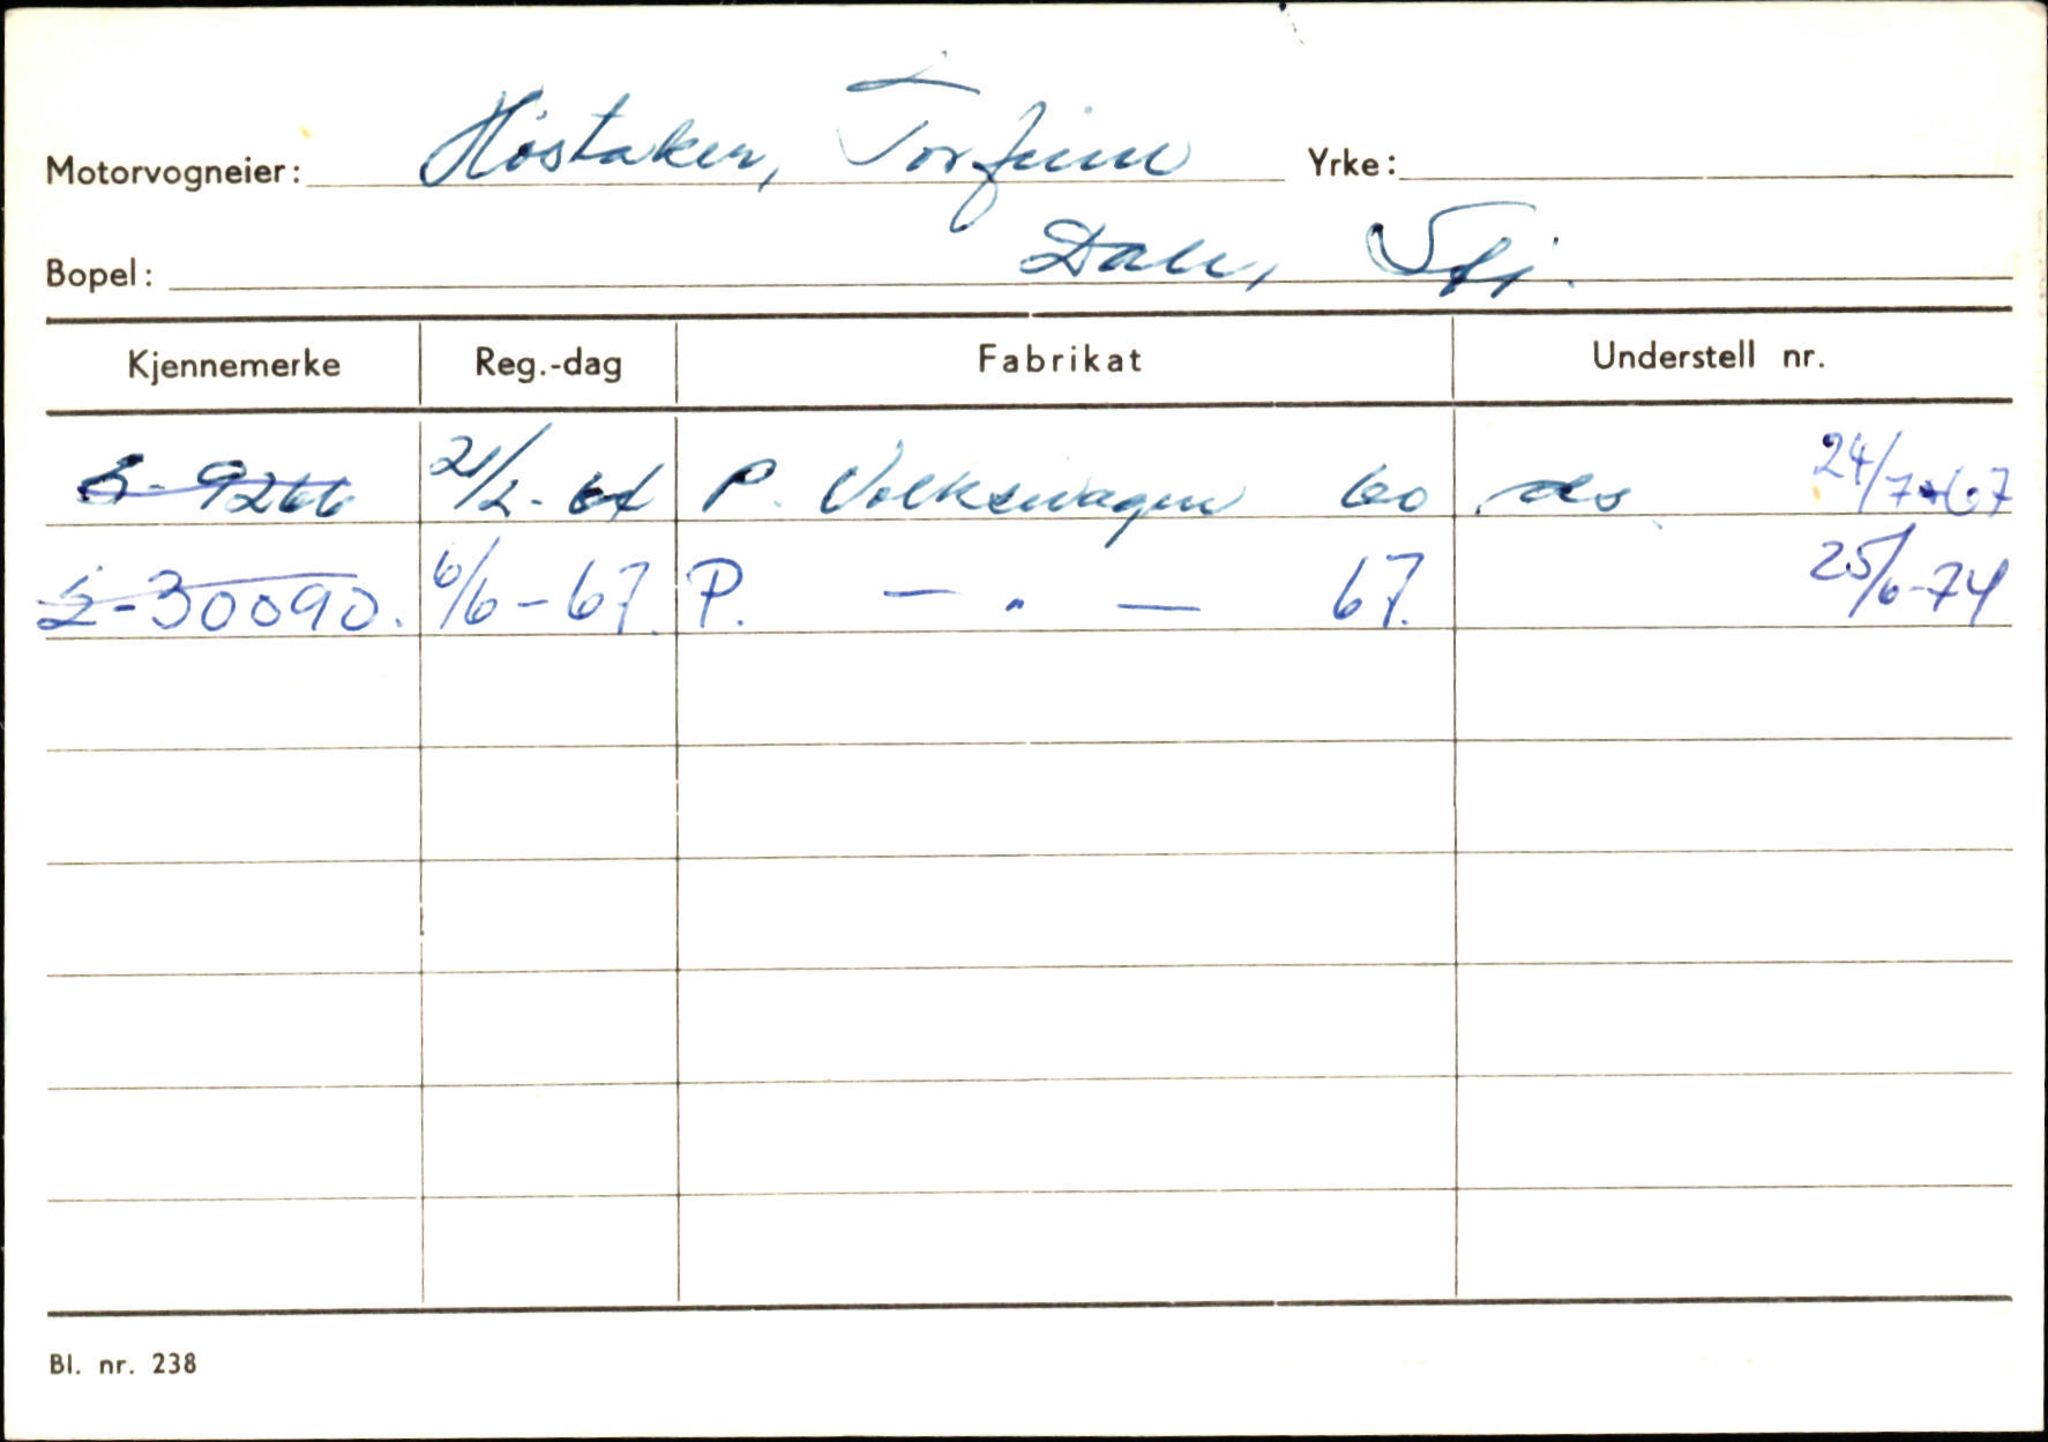 Motorvogneier: Høstaker, Torfinn Yrke:
Bopel: Dale, Sfj.
Kjennemerke Reg.-dag Fabrikat Understell nr.
S-9266 21/2-64 P. Volkswagen 60 24/7-67
S-30090. 6/6-67. P. — . — 67. 25/6-74
Bl. nr. 238